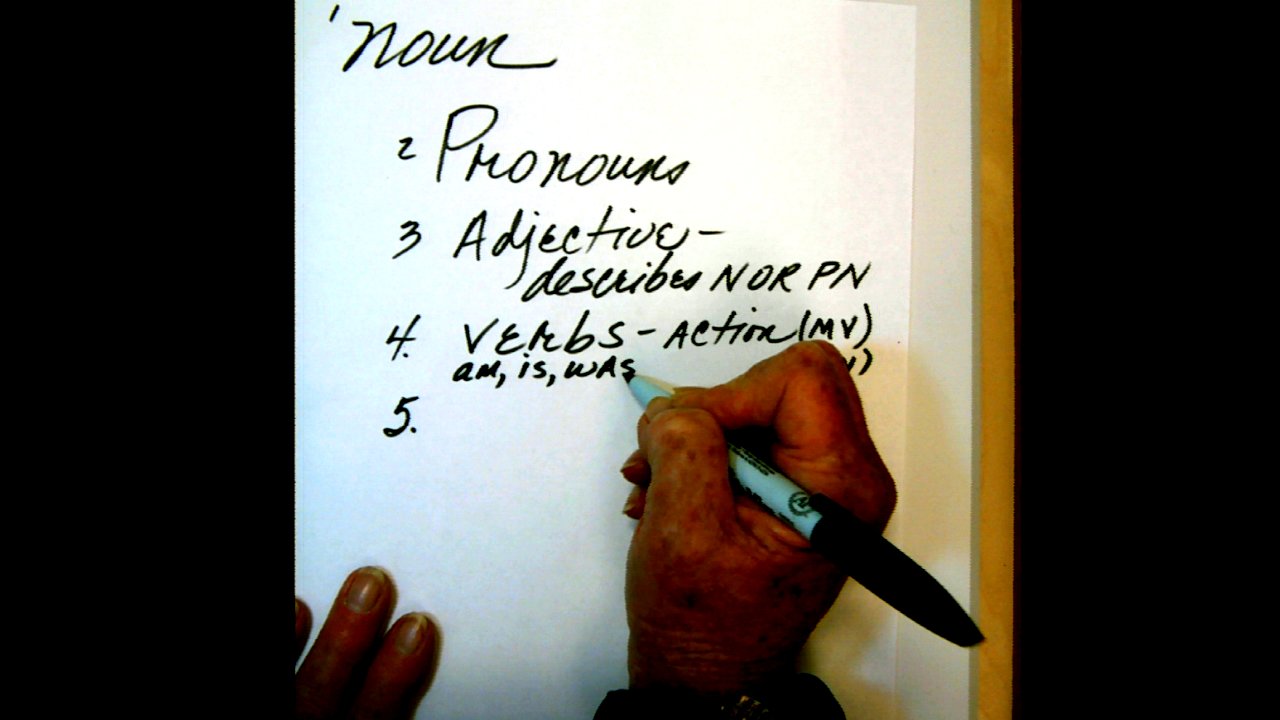 ' noun
2 Pronouns
3 Adjective -
describes N OR PN
4. VERbS - Action (MV)
am, is, was
5.